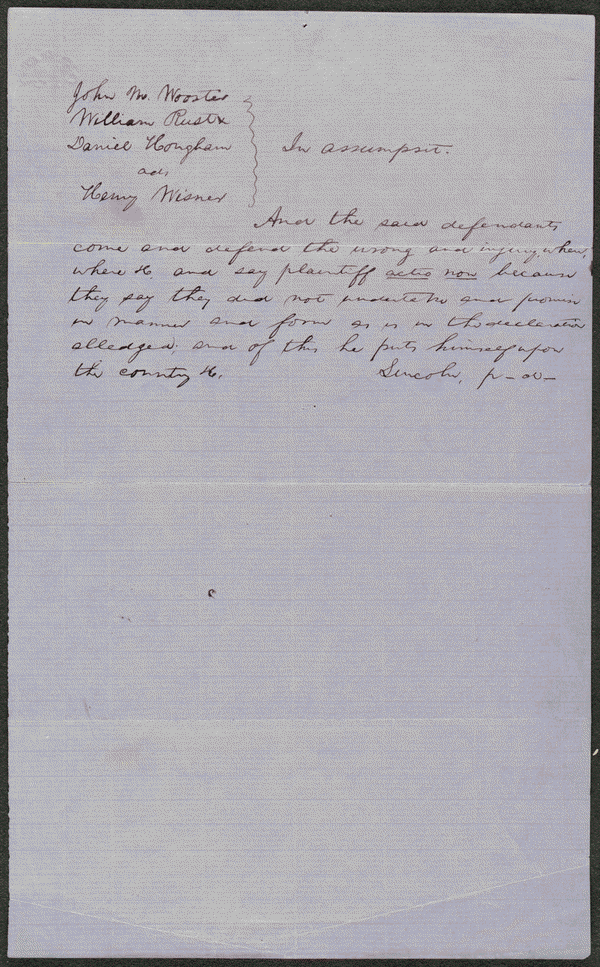 John M. Wooster
William Rust &
Daniel Hongham
ads
Henry Wisner
In assumpsit.
And the said defendants
come and defend the wrong and injury, when,
where &c and say plaintiff actio non because
they say they did not undertake and promise
in manner and form as is in the declaration
alledged; and of this he puts himself upon
the country &c.
Lincoln, p-d-